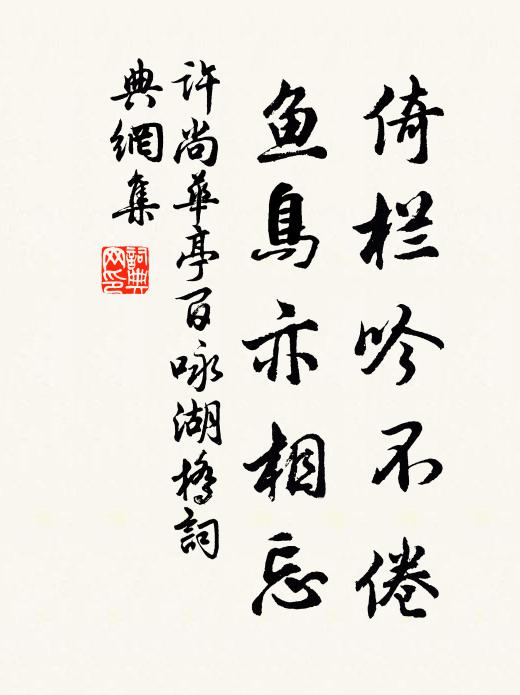 倚栏吟不倦
鱼鸟亦相忘
许尚华亭百咏湖桥詞
典網集
詞典
网印